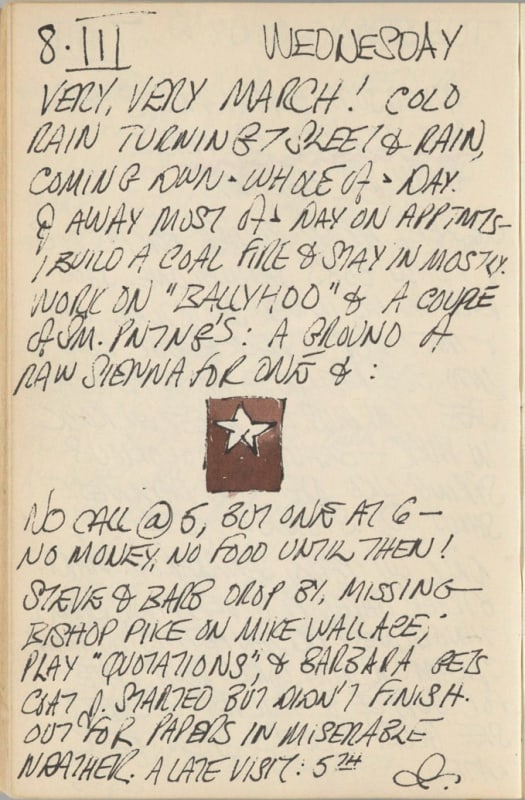 8·III WEDNESDAY
VERY, VERY MARCH! COLD
RAIN TURNING T SLEET & RAIN,
COMING DWN - WHOLE OF - DAY.
AWAY MOST OF - DAY ON APPTMTS-
I BUILD A COAL FIRE & STAY IN MOSTLY.
WORK ON "BALLYHOO" & A COUPLE
OF SM. PNTNG'S: A GROUND OF
RAW SIENNA FOR ONE & :
NO CALL @ 5, BUT ONE AT 6 —
NO MONEY, NO FOOD UNTIL THEN!
STEVE & BARB DROP BY, MISSING
BISHOP PIKE ON MIKE WALLACE;
PLAY "QUOTATIONS", & BARBARA GETS
COAT J. STARTED BUT DIDN'T FINISH.
OUT FOR PAPERS IN MISERABLE
WEATHER. A LATE VISIT: 5TH